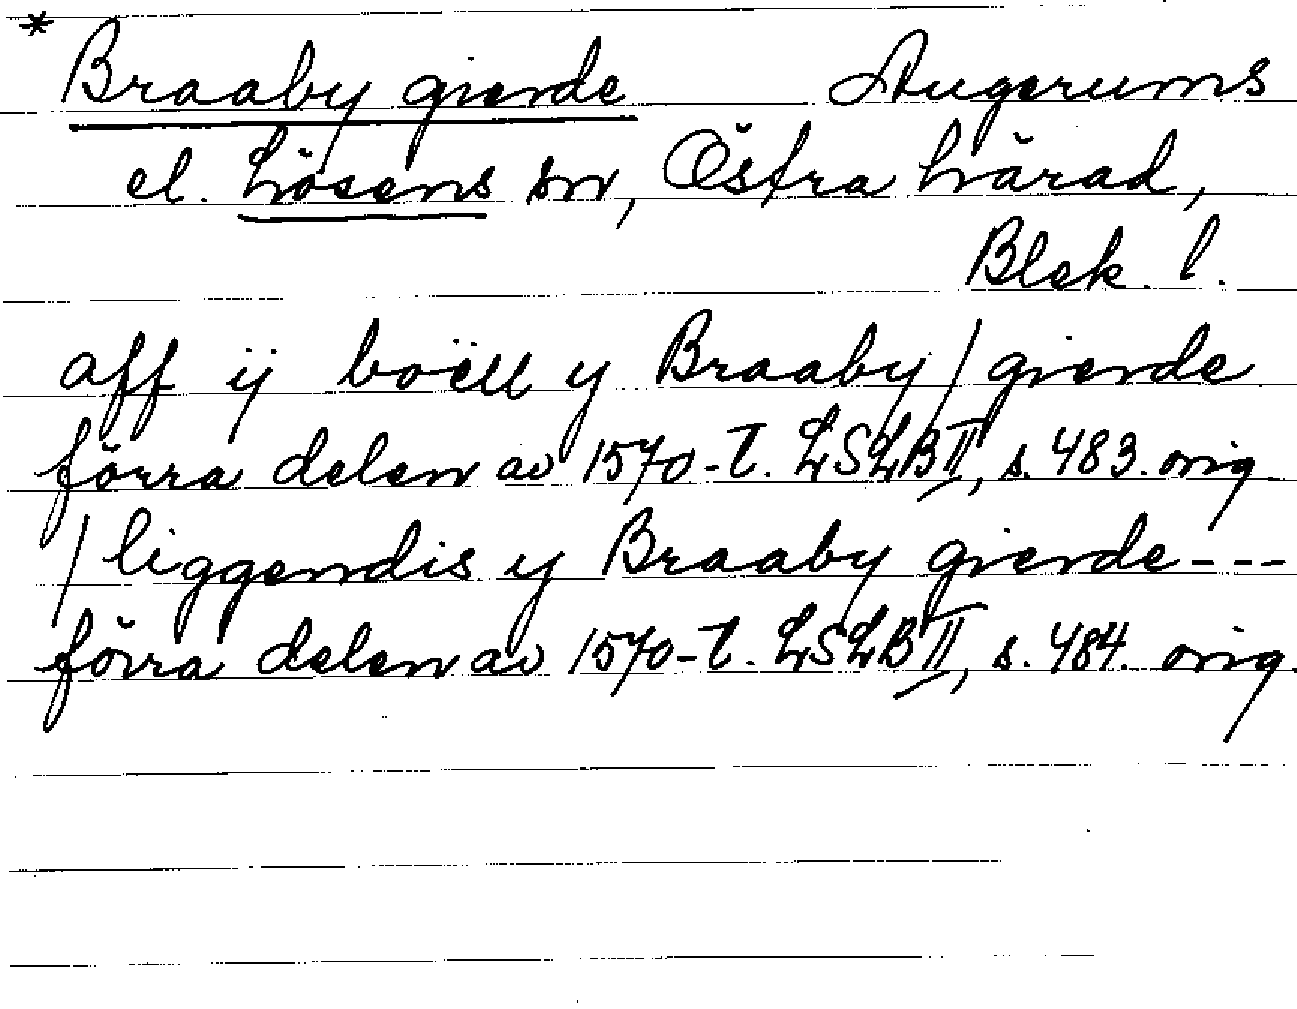 * Braaby gierde Augerums
el. Lösens sn, Östra härad,
Blek. l.
aff ij boëll y Braaby / gierde
förra delen av 1570-t. LSLB II, s. 483. orig
/ liggendis y Braaby gierde ---
förra delen av 1570-t. LSLB II, s. 484. orig.